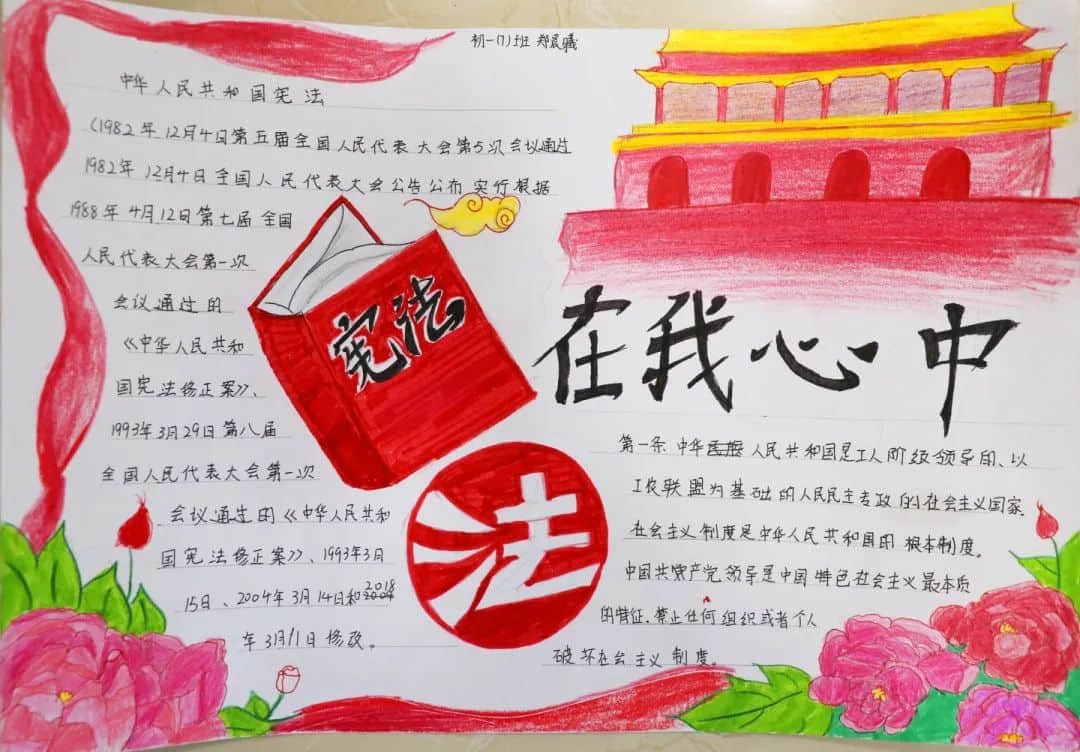 初一(7)班 郑晨曦
中华人民共和国宪法
(1982年12月4日第五届全国人民代表大会第5次会议通过
1982年12月4日全国人民代表大会公告公布实行根据
1988年4月12日第七届全国
人民代表大会第一次
会议通过的
《中华人民共和
国宪法修正案》、
1993年3月29日第八届
全国人民代表大会第一次
会议通过的《中华人民共和
国宪法修正案》、1993年3月
15日、2004年3月14日和2018
年3月11日修改。
宪法
在我心中
法
第一条 中华人民共和国是工人阶级领导的、以
工农联盟为基础的人民民主专政的社会主义国家
社会主义制度是中华人民共和国的根本制度。
中国共产党领导是中国特色社会主义最本质
的特征。禁止任何组织或者个人
破坏社会主义制度。